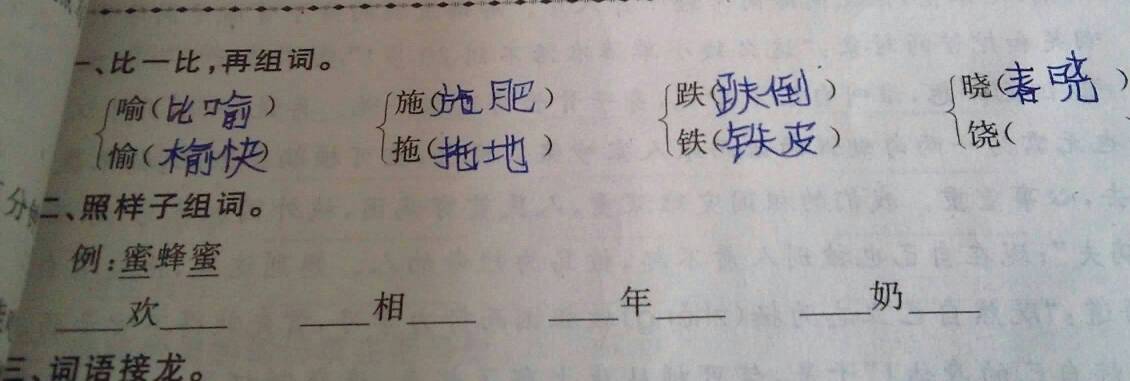 一、比一比,再组词。
喻(比喻) 施(施肥) 跌(跌倒) 晓(春晓)
愉(愉快) 拖(拖地) 铁(铁皮) 饶(
二、照样子组词。
例:蜜蜂蜜
____欢____ ____相____ ____年____ ____奶____
三、词语接龙。